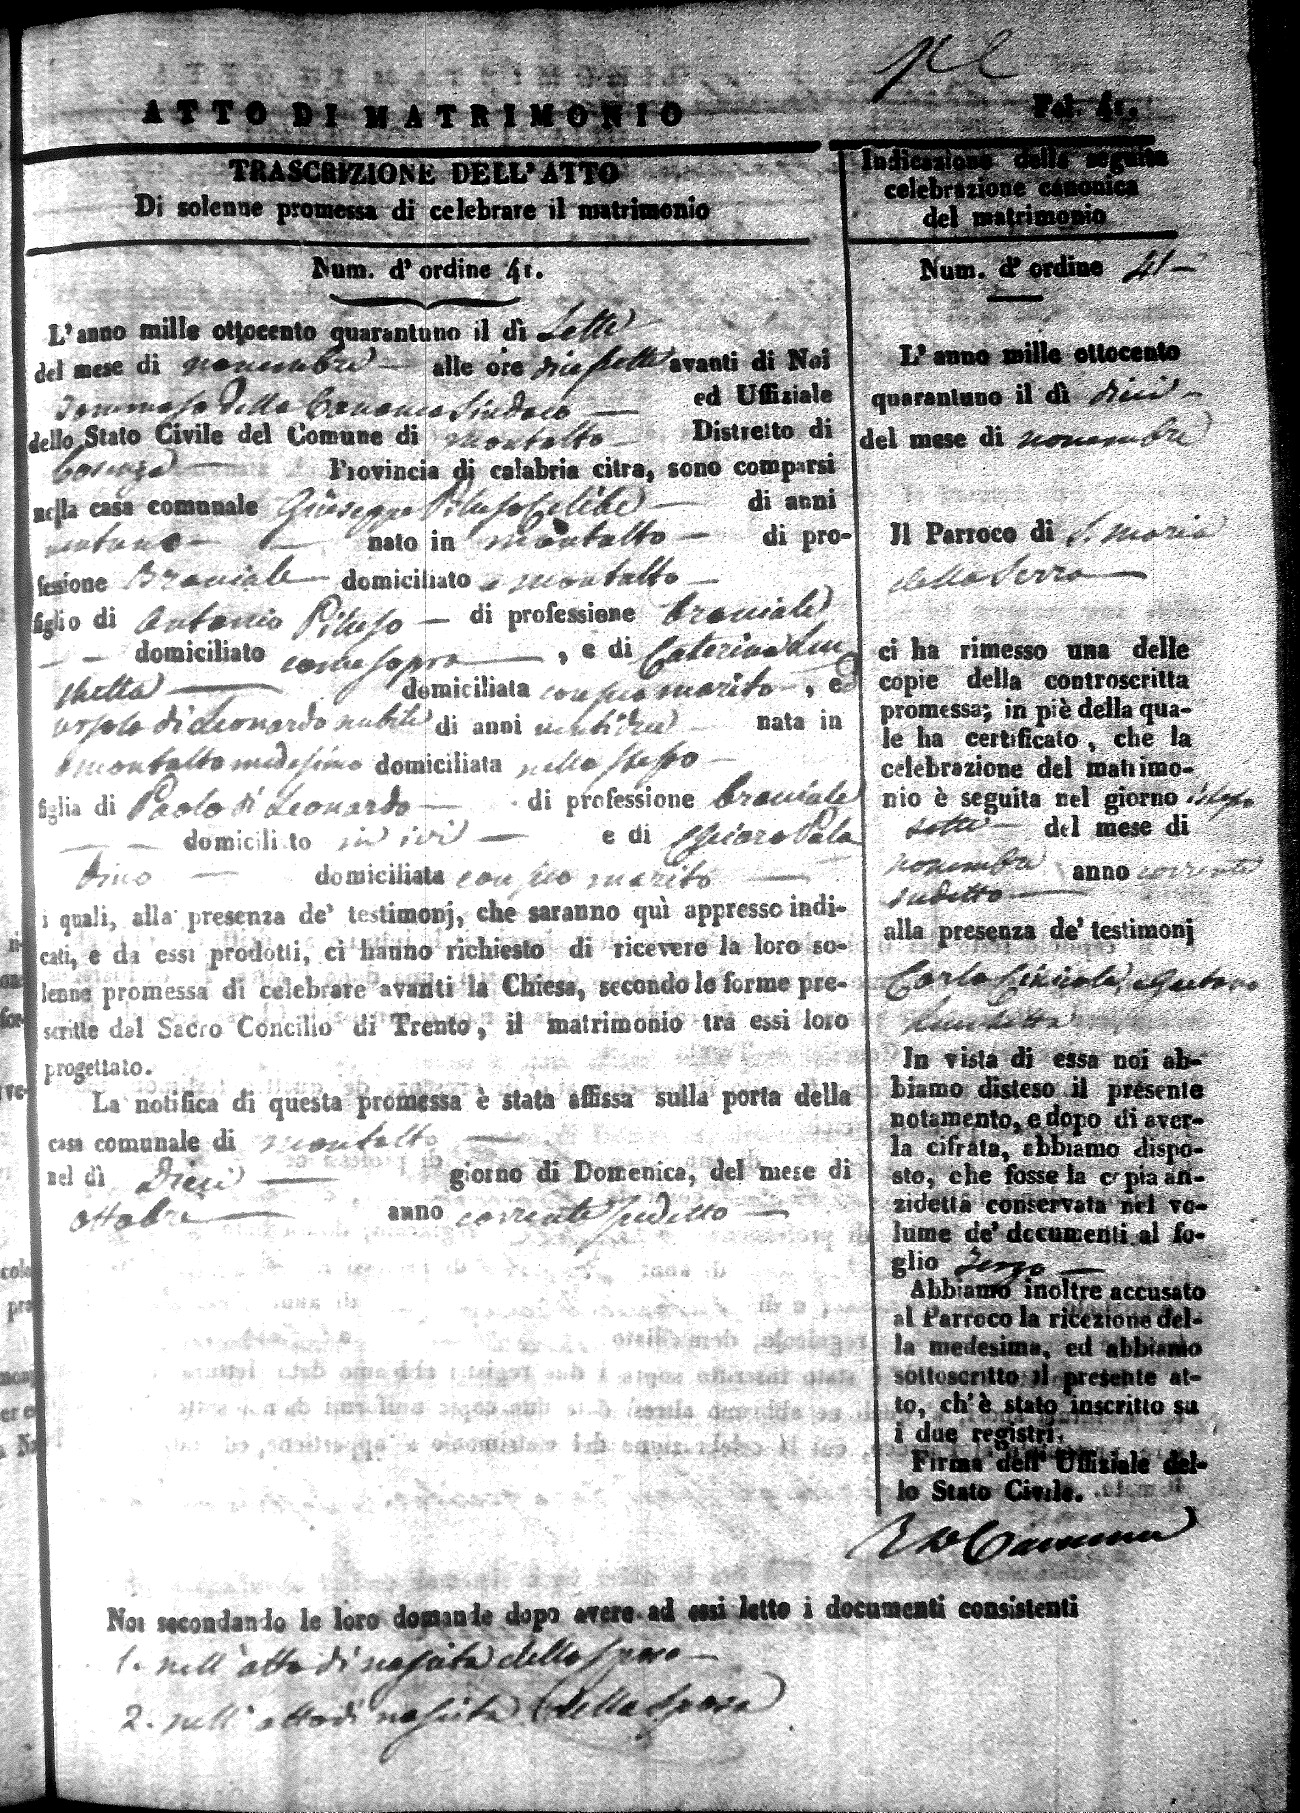 ATTO DI MATRIMONIO
Fol. 41.
TRASCRIZIONE DELL'ATTO
Di solenne promessa di celebrare il matrimonio
Num. d' ordine 41.
L'anno mille ottocento quarantuno il dì Sette
del mese di novembre alle ore diecisette avanti di Noi
Tommaso della Cananea Sindaco ed Uffiziale
dello Stato Civile del Comune di Montalto Distretto di
Cosenza Provincia di calabria citra, sono comparsi
nella casa comunale Giuseppe Piluso Celibe di anni
ventuno nato in Montalto di pro-
fessione Braciale domiciliato a Montalto
figlio di Antonio Piluso di professione braciale
domiciliato come sopra, e di Caterina
domiciliata con suo marito, e
Orsola di Leonardo nubile di anni nata in
Montalto medesimo domiciliata nello stesso
figlia di Paolo di Leonardo di professione braciale
domicili to in ivi e di Chiara Pala
dino domiciliata con suo marito
i quali, alla presenza de' testimonj, che saranno quì appresso indi-
cati, e da essi prodotti, ci hanno richiesto di ricevere la loro so-
lenne promessa di celebrare avanti la Chiesa, secondo le forme pre-
scritte dal Sacro Concilio di Trento, il matrimonio tra essi loro
progettato.
La notifica di questa promessa è stata affissa sulla porta della
casa comunale di Montalto
nel dì Dieci giorno di Domenica, del mese di
ottobre anno corrente sudetto
Indicazione della seguita
celebrazione canonica
del matrimonio
Num. d' ordine 41
L'anno mille ottocento
quarantuno il dì dieci
del mese di novembre
Il Parroco di S. Maria
della Serra
ci ha rimesso una delle
copie della controscritta
promessa; in piè della qua-
le ha certificato, che la
celebrazione del matrimo-
nio è seguita nel giorno
sette del mese di
novembre anno corrente
sudetto
alla presenza de' testimonj
Carlo
In vista di essa noi ab-
biamo disteso il presente
notamento, e dopo di aver-
la cifrata, abbiamo dispo-
sto, che fosse la copia an-
zidetta conservata nel vo-
lume de' documenti al fo-
glio terzo
Abbiamo inoltre accusato
al Parroco la ricezione del-
la medesima, ed abbiamo
sottoscritto il presente at-
to, ch'è stato inscritto su
i due registri.
Firma dell' Uffiziale del-
lo Stato Civile.
Noi secondando le loro domande dopo avere ad essi letto i documenti consistenti
1. nell'atto di nascita dello sposo
2. nell'atto di nascita della sposa